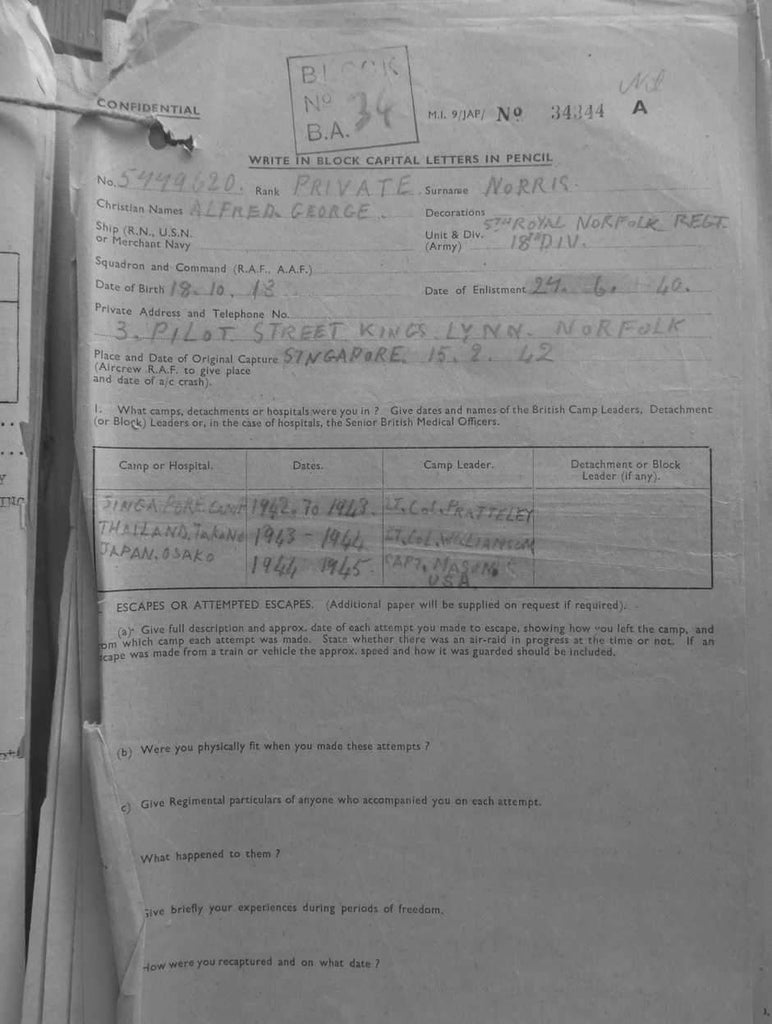 BLOCK
No 34
B.A.
CONFIDENTIAL
M.I. 9/JAP/ No 34344 A
Nil
WRITE IN BLOCK CAPITAL LETTERS IN PENCIL
No. 5779620. Rank PRIVATE. Surname NORRIS.
Christian Names ALFRED. GEORGE. Decorations
Ship (R.N., U.S.N. or Merchant Navy
Unit & Div. (Army) 5TH ROYAL NORFOLK REGT. 18TH DIV.
Squadron and Command (R.A.F., A.A.F.)
Date of Birth 18. 10. 13 Date of Enlistment 27. 6. 40.
Private Address and Telephone No.
3. PILOT STREET KINGS. LYNN. NORFOLK
Place and Date of Original Capture SINGAPORE. 15. 2. 42
(Aircrew R.A.F. to give place
and date of a/c crash).
1. What camps, detachments or hospitals were you in ? Give dates and names of the British Camp Leaders, Detachment
(or Block) Leaders or, in the case of hospitals, the Senior British Medical Officers.
Camp or Hospital. Dates. Camp Leader. Detachment or Block
Leader (if any).
SINGAPORE. CAMP 1942. TO 1943. LT. COL. PRATTELEY
THAILAND. 1943 - 1944 LT. COL. WILLIAMSON
JAPAN. OSAKO 1944 1945. CAPT. MASON
USA
ESCAPES OR ATTEMPTED ESCAPES. (Additional paper will be supplied on request if required).
(a) Give full description and approx. date of each attempt you made to escape, showing how you left the camp, and
om which camp each attempt was made. State whether there was an air-raid in progress at the time or not. If an
scape was made from a train or vehicle the approx. speed and how it was guarded should be included.
(b) Were you physically fit when you made these attempts ?
c) Give Regimental particulars of anyone who accompanied you on each attempt.
What happened to them ?
Give briefly your experiences during periods of freedom.
How were you recaptured and on what date ?